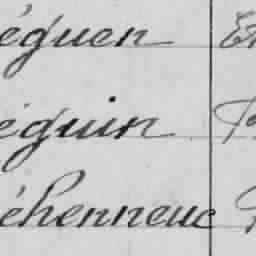 éguen
éguin
éhenneuc